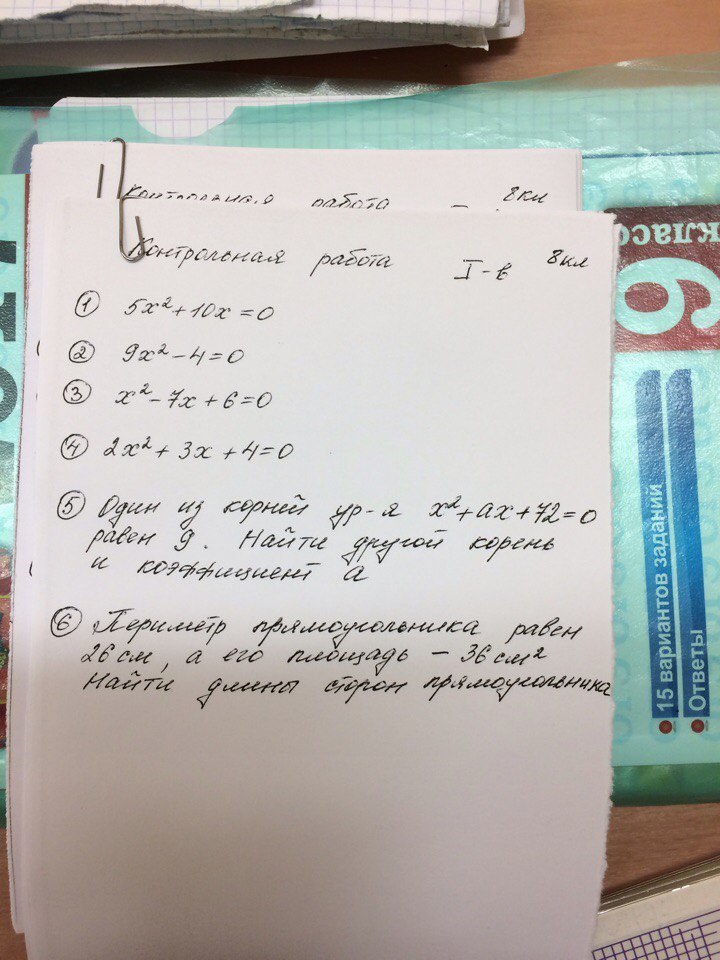 Контрольная работа 8кл
Контрольная работа I-в 8кл
① 5x²+10x=0
② 9x²-4=0
③ x²-7x+6=0
④ 2x²+3x+4=0
⑤ Один из корней ур-я x²+ax+72=0
равен 9. Найти другой корень
и коэффициент a
⑥ Периметр прямоугольника равен
26 см, а его площадь - 36 см²
Найти длины сторон прямоугольника
класс
6
15 вариантов заданий
Ответы